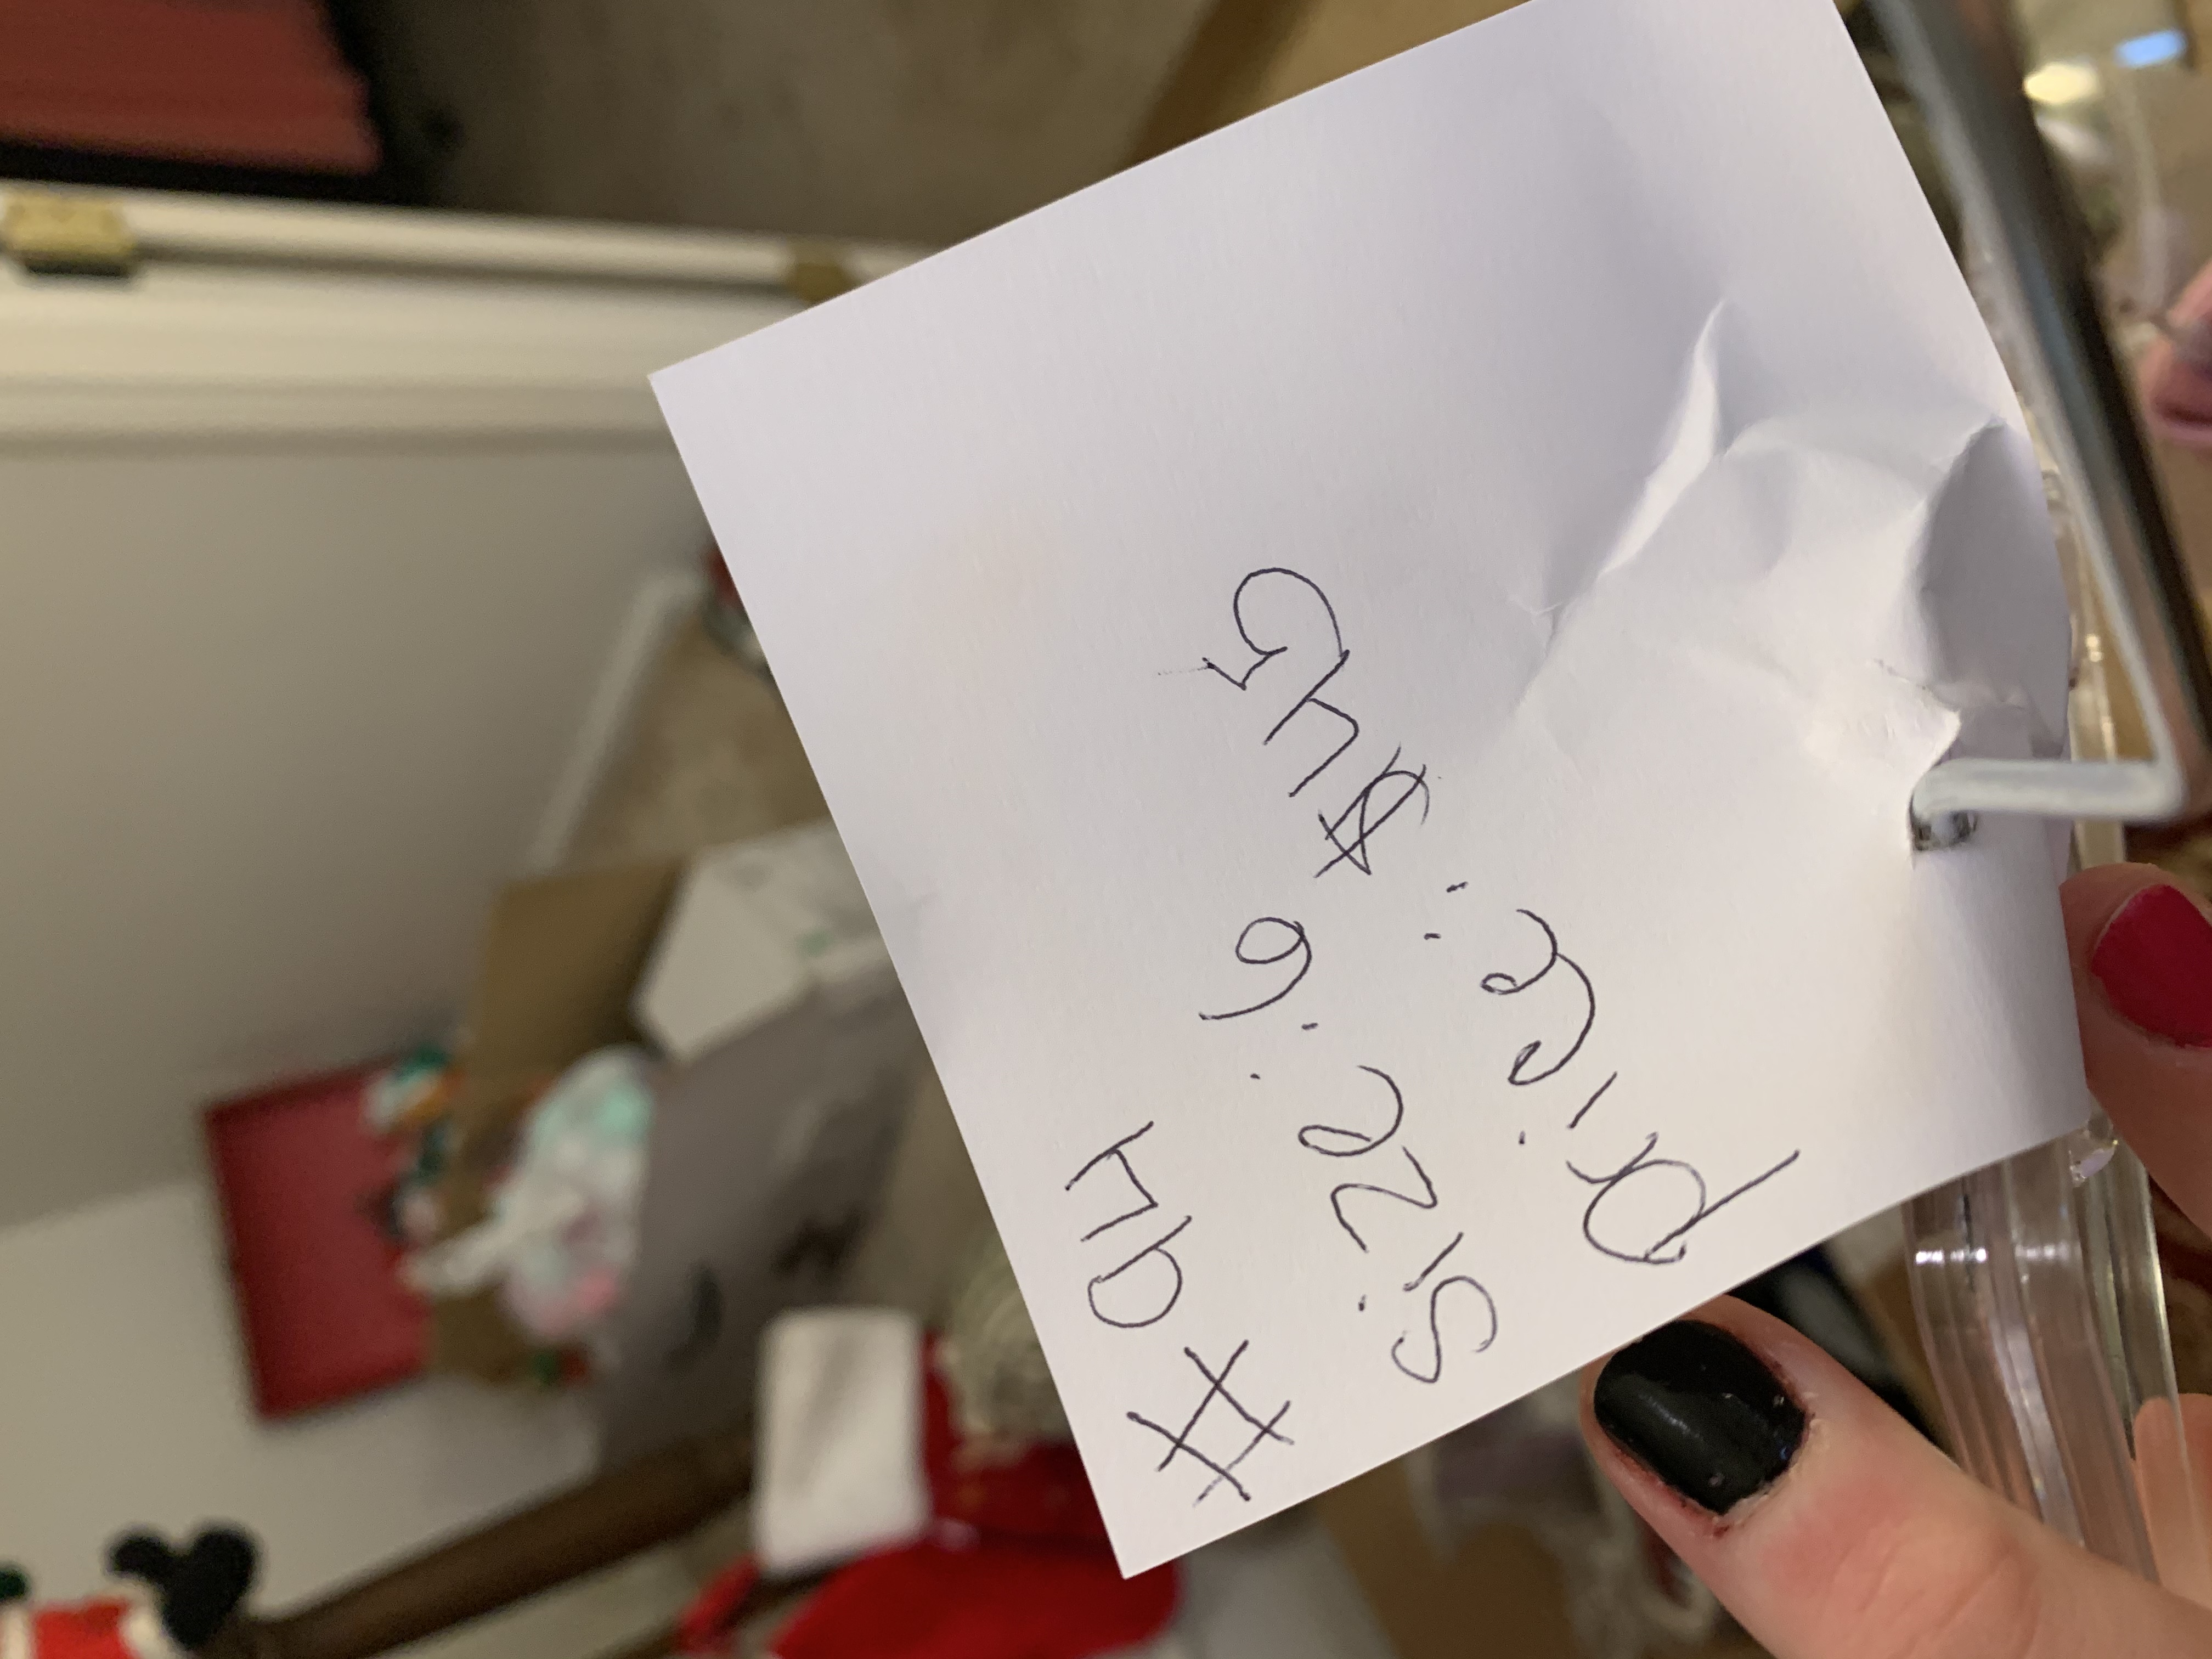 #94
size:6
price: $45